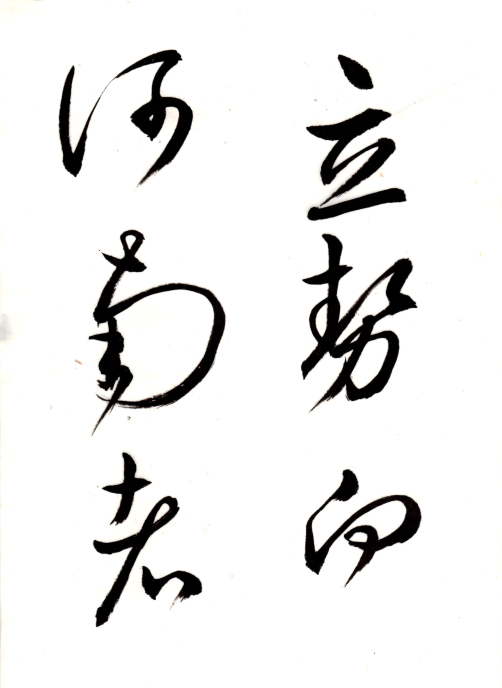 立勢向
河南者